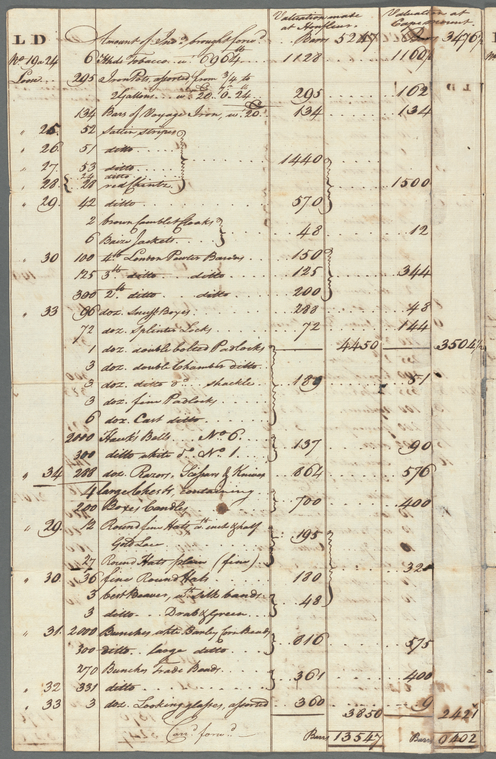 Valuation made Valuation at
LD Amount of Inv. brought forw.d Bars 3476
No 19 a 24 6 Hhds Tobacco w 6964 1128 1160
Iron 295 Iron Pots, assorted from 3/4 to
2 Gallons 20. 0. 24 295 162
134 Bars of Voyage Iron, w. 20 134 134
" 25 52 Satin stripes
" 26 51 ditto 1440
" 27 53 ditto
ditto
" 28 28 red Chintz 1500
" 29 42 ditto 570
2 brown Camblet Cloaks
6 Baize Jackets 48 12
" 30 100 4 lb London Pewter Basons 150
125 3 lb ditto ditto 125 344
300 2 lb ditto ditto 200
" 33 96 doz. Snuff Boxes 288 48
72 doz. Splinter Locks 72 144
1 doz. double bolted Padlocks 4450 3504 1/2
3 doz. double Chamber ditto
3 doz. ditto d.o shackle 189 81
3 doz. fine Padlocks
6 doz. Cast ditto
2000 Hawks Bells No 6.
300 ditto white d.o No 1. 137 90
" 34 288 doz. Razors, Scissars & Knives 864 576
4 large Chests, containing
200 Boxes Candles 700 400
" 29 12 Round fine Hats w.th inch & half
Gold Lace 195
27 Round Hats plain (fine)
" 30 36 fine Round Hats 180 32
3 best Beaver, w.th Silk bands
3 ditto Drab & Green 48
" 31 2000 Bunches white Barley Corn Beads
300 ditto large ditto 816 575
270 Bunches Trade Beads
" 32 331 ditto 361 400
" 33 3 doz. Looking glasses, assorted 360 9
3850 2421
Car.d forw.d Bars 13547 Bars 9402